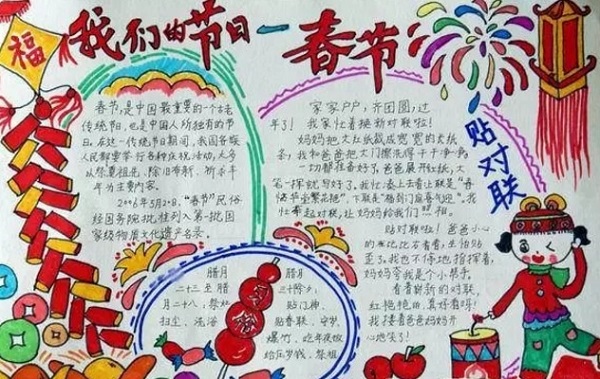 福
我们的节日一春节
春节,是中国最重要的一个古老
传统节日,也是中国人所独有的节
日。在这一传统节日期间,我国各族
人民都要举行各种庆祝活动,大多
以祭奠祖先、除旧布新、祈求丰
年为主要内容。
2006年5月20日,"春节"民俗
经国务院批准列入第一批国
家级物质文化遗产名录。
家家户户,齐团圆,过
年了!我家忙着换新对联啦!
妈妈把大红纸裁成宽宽的大纸
条,我和爸爸把大门擦洗得干干净净,
一切都准备好了,爸爸展开红纸,大
笔一挥就写好了。我忙凑上去看让联是"春
贴对联
贴对联啦!爸爸小心
妈妈夸我是个小帮手。
看着崭新的对联,
红艳艳的,真好看呀!
我搂着爸爸妈妈开
心地笑了!
腊月
二十三至腊
月二十八:祭灶
扫尘、洗浴
腊月
三十除夕:
贴门神、
贴春联、守岁、
爆竹、吃年夜饭
给压岁钱、祭祖